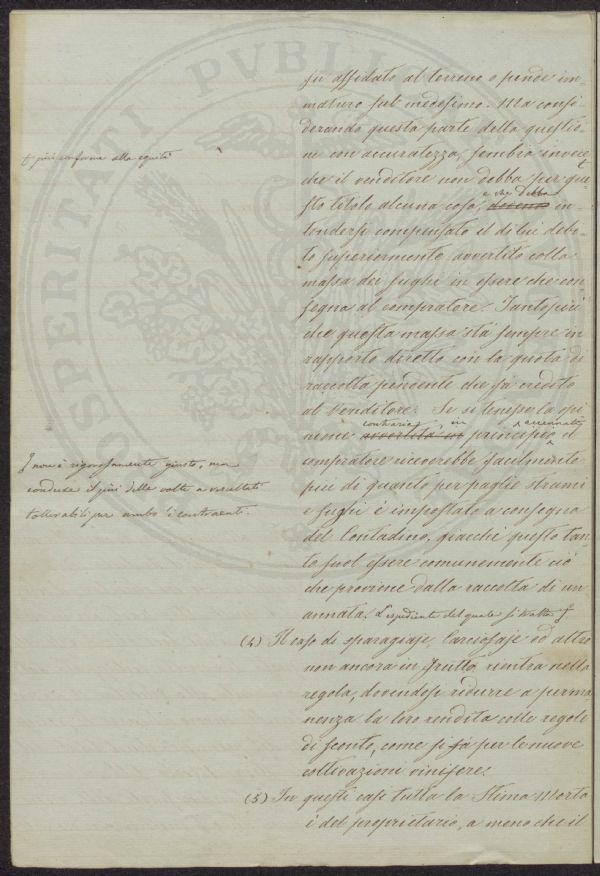 PROSPERITATI PUBLICAE
fu affidato al terreno e pende im=
maturo sul medesimo. Ma consi=
derando questa parte della questio
ne con accuratezza, sembra invece
+ più conforme alla equità
che il venditore non debba per que=
sto titolo alcuna cosa, e che debba in=
tendersi compensato il di lui debi=
to superiormente avvertito colla
massa dei sughi in essere che con
segna al compratore. Tantopiù
che questa massa stà sempre in
rapporto diretto con la quota di
raccolta pendente che fa credito
al Venditore. Se si tenesse la opi
nione contraria, in principio accennata, il
compratore riceverebbe facilmente
più di quanto per paglie strami
e sughi è impostato a consegna
del Contadino, giacchè questo tan
to suol essere comunemente ciò
che proviene dalla raccolta di un
annata. L'espediente del quale si tratta
non è rigorosamente giusto, ma
conduce il più delle volte a risultati
tollerabili per ambo i contraenti.
(4) Il caso di sparagiaje, Carciofaje ed altro
non ancora in frutto, rientra nella
regola, dovendosi ridurre a perma
nenza la loro rendita colle regole
di sconto, come si fà per le nuove
coltivazioni vinifere.
(5) In questi casi tutta la Stima Morta
è del proprietario, a meno che il